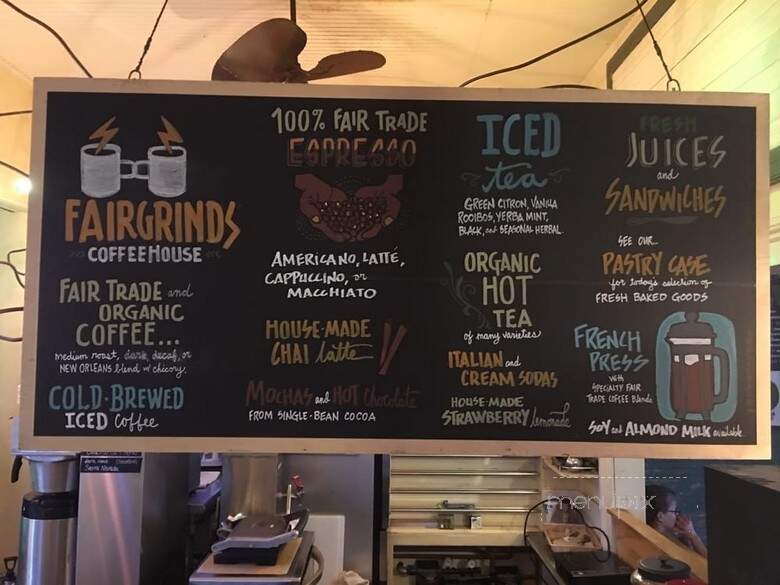 FAIRGRINDS
COFFEEHOUSE
FAIR TRADE and
ORGANIC
COFFEE...
medium roast, dark, decaf, or
NEW ORLEANS blend w/ chicory.
COLD-BREWED
ICED Coffee
100% FAIR TRADE
ESPRESSO
AMERICANO, LATTÉ,
CAPPUCCINO, or
MACCHIATO
HOUSE-MADE
CHAI latte
MOCHAS and HOT chocolate
FROM SINGLE-BEAN COCOA
ICED
tea
GREEN CITRON, VANILLA
ROOIBOS, YERBA MINT,
BLACK, and SEASONAL HERBAL
ORGANIC
HOT
TEA
of many varieties
ITALIAN and
CREAM SODAS
HOUSE-MADE
STRAWBERRY lemonade
FRESH
JUICES
and
SANDWICHES
SEE OUR...
PASTRY CASE
for today's selection of
FRESH BAKED GOODS
FRENCH
PRESS
with
SPECIALTY FAIR
TRADE COFFEE Blends
SOY and ALMOND MILK available
menupix